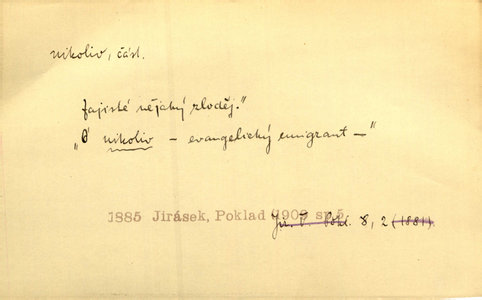 nikoliv, část.
Zajisté nějaký zloděj."
„Ó nikoliv – evangelický emigrant –"
1885 Jirásek, Poklad 1902 sp.5
8, 2 (1881).